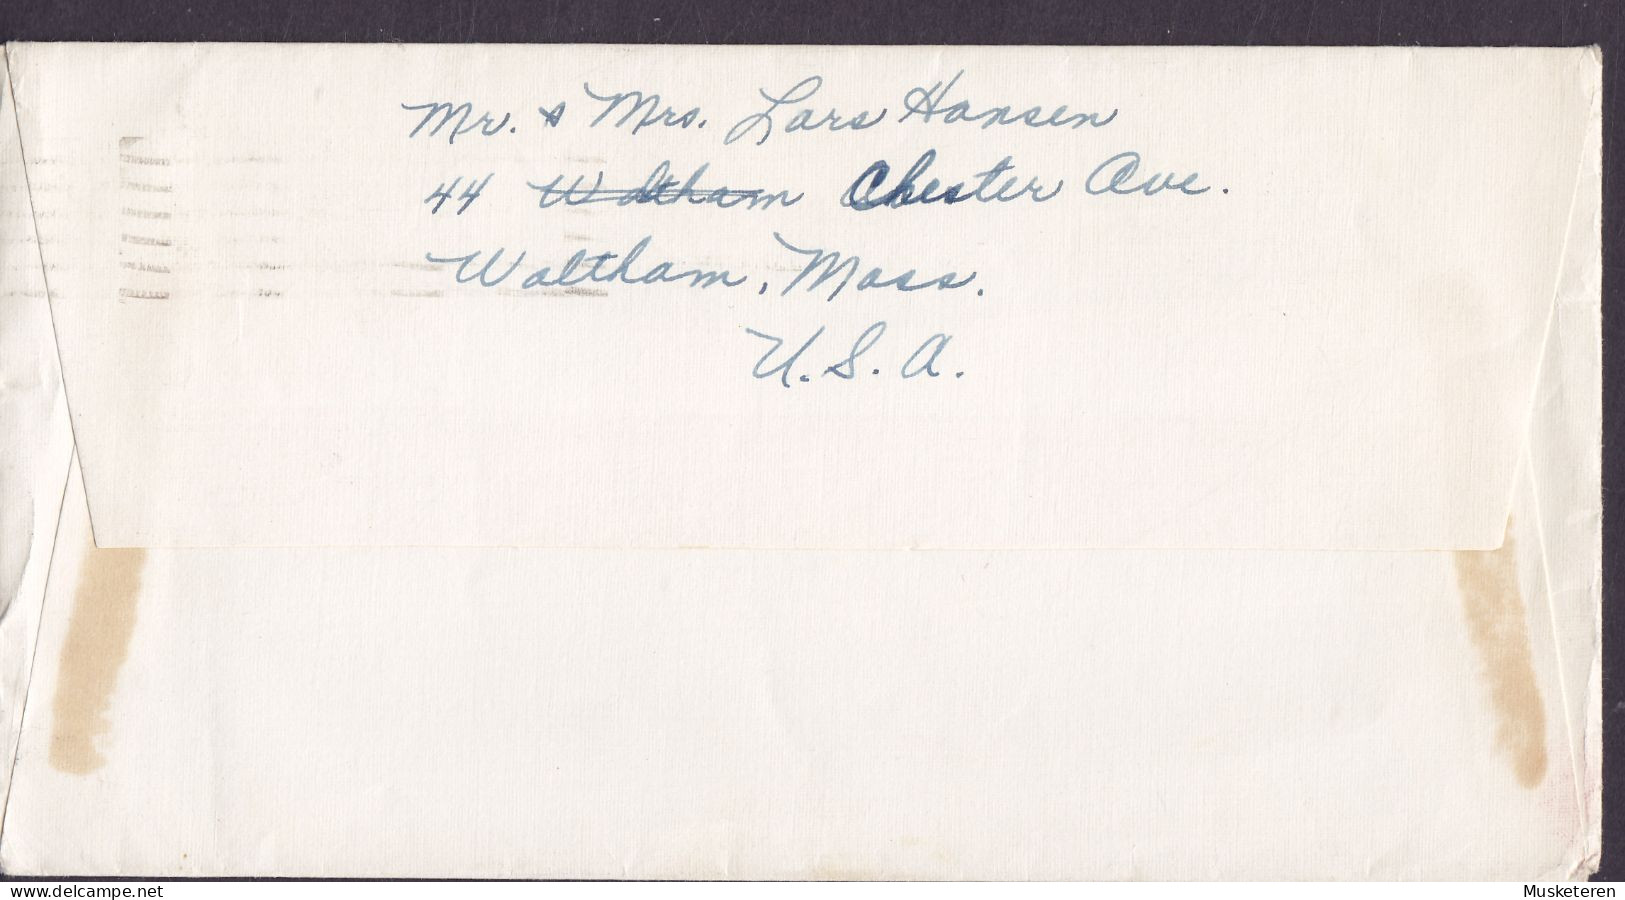 Mr. & Mrs. Lars Hansen
44 Waltham Chester Ave.
Waltham, Mass.
U. S. A.
www.delcampe.net
Musketeren